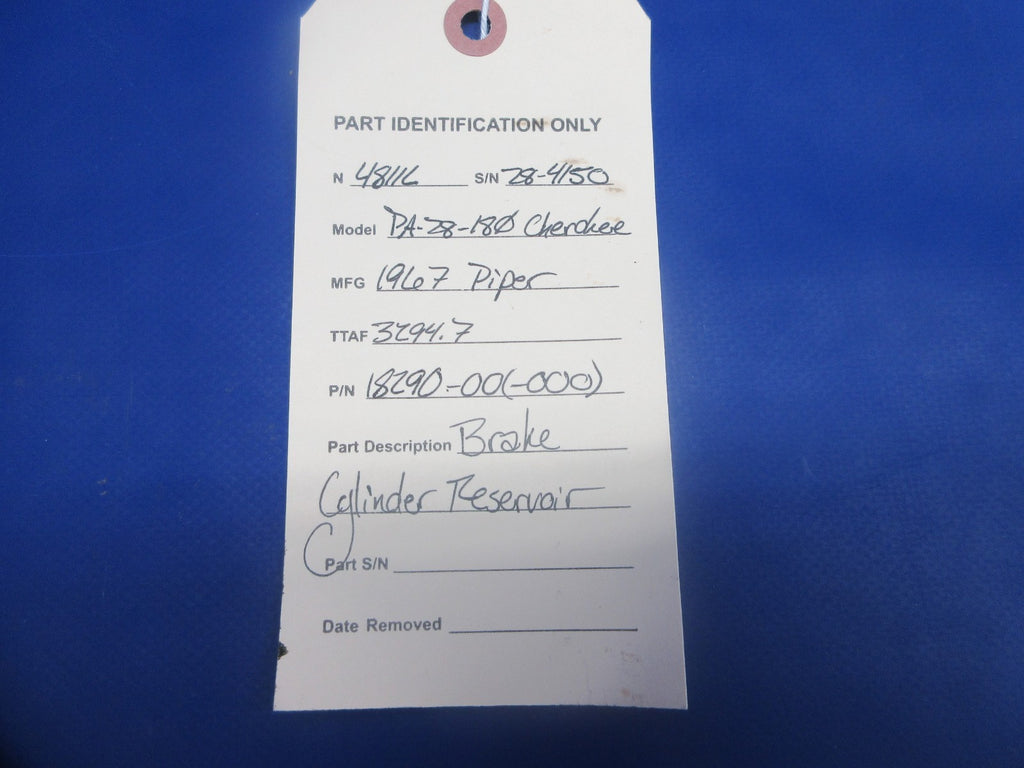 PART IDENTIFICATION ONLY
N 4811L S/N 28-4150
Model PA-28-180 Cherokee
MFG 1967 Piper
TTAF 3294.7
P/N 18290-00(-000)
Part Description Brake
Cylinder Reservoir
Part S/N
Date Removed